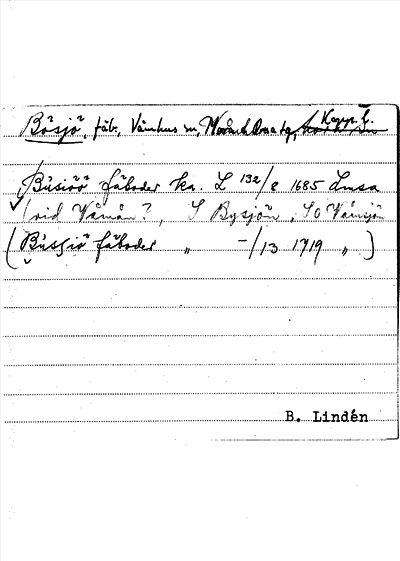 Bösjö, fäb., Våmhus sn, Mora och Orsa tg, Kopp. l.
Büsiöö fäboder ka. L 132/8 1685 Lmsa
(vid Våmån?, S Bysjön, SO Våmsjön
(Bùssiö fäboder " -/13 1719 " )
B. Lindén